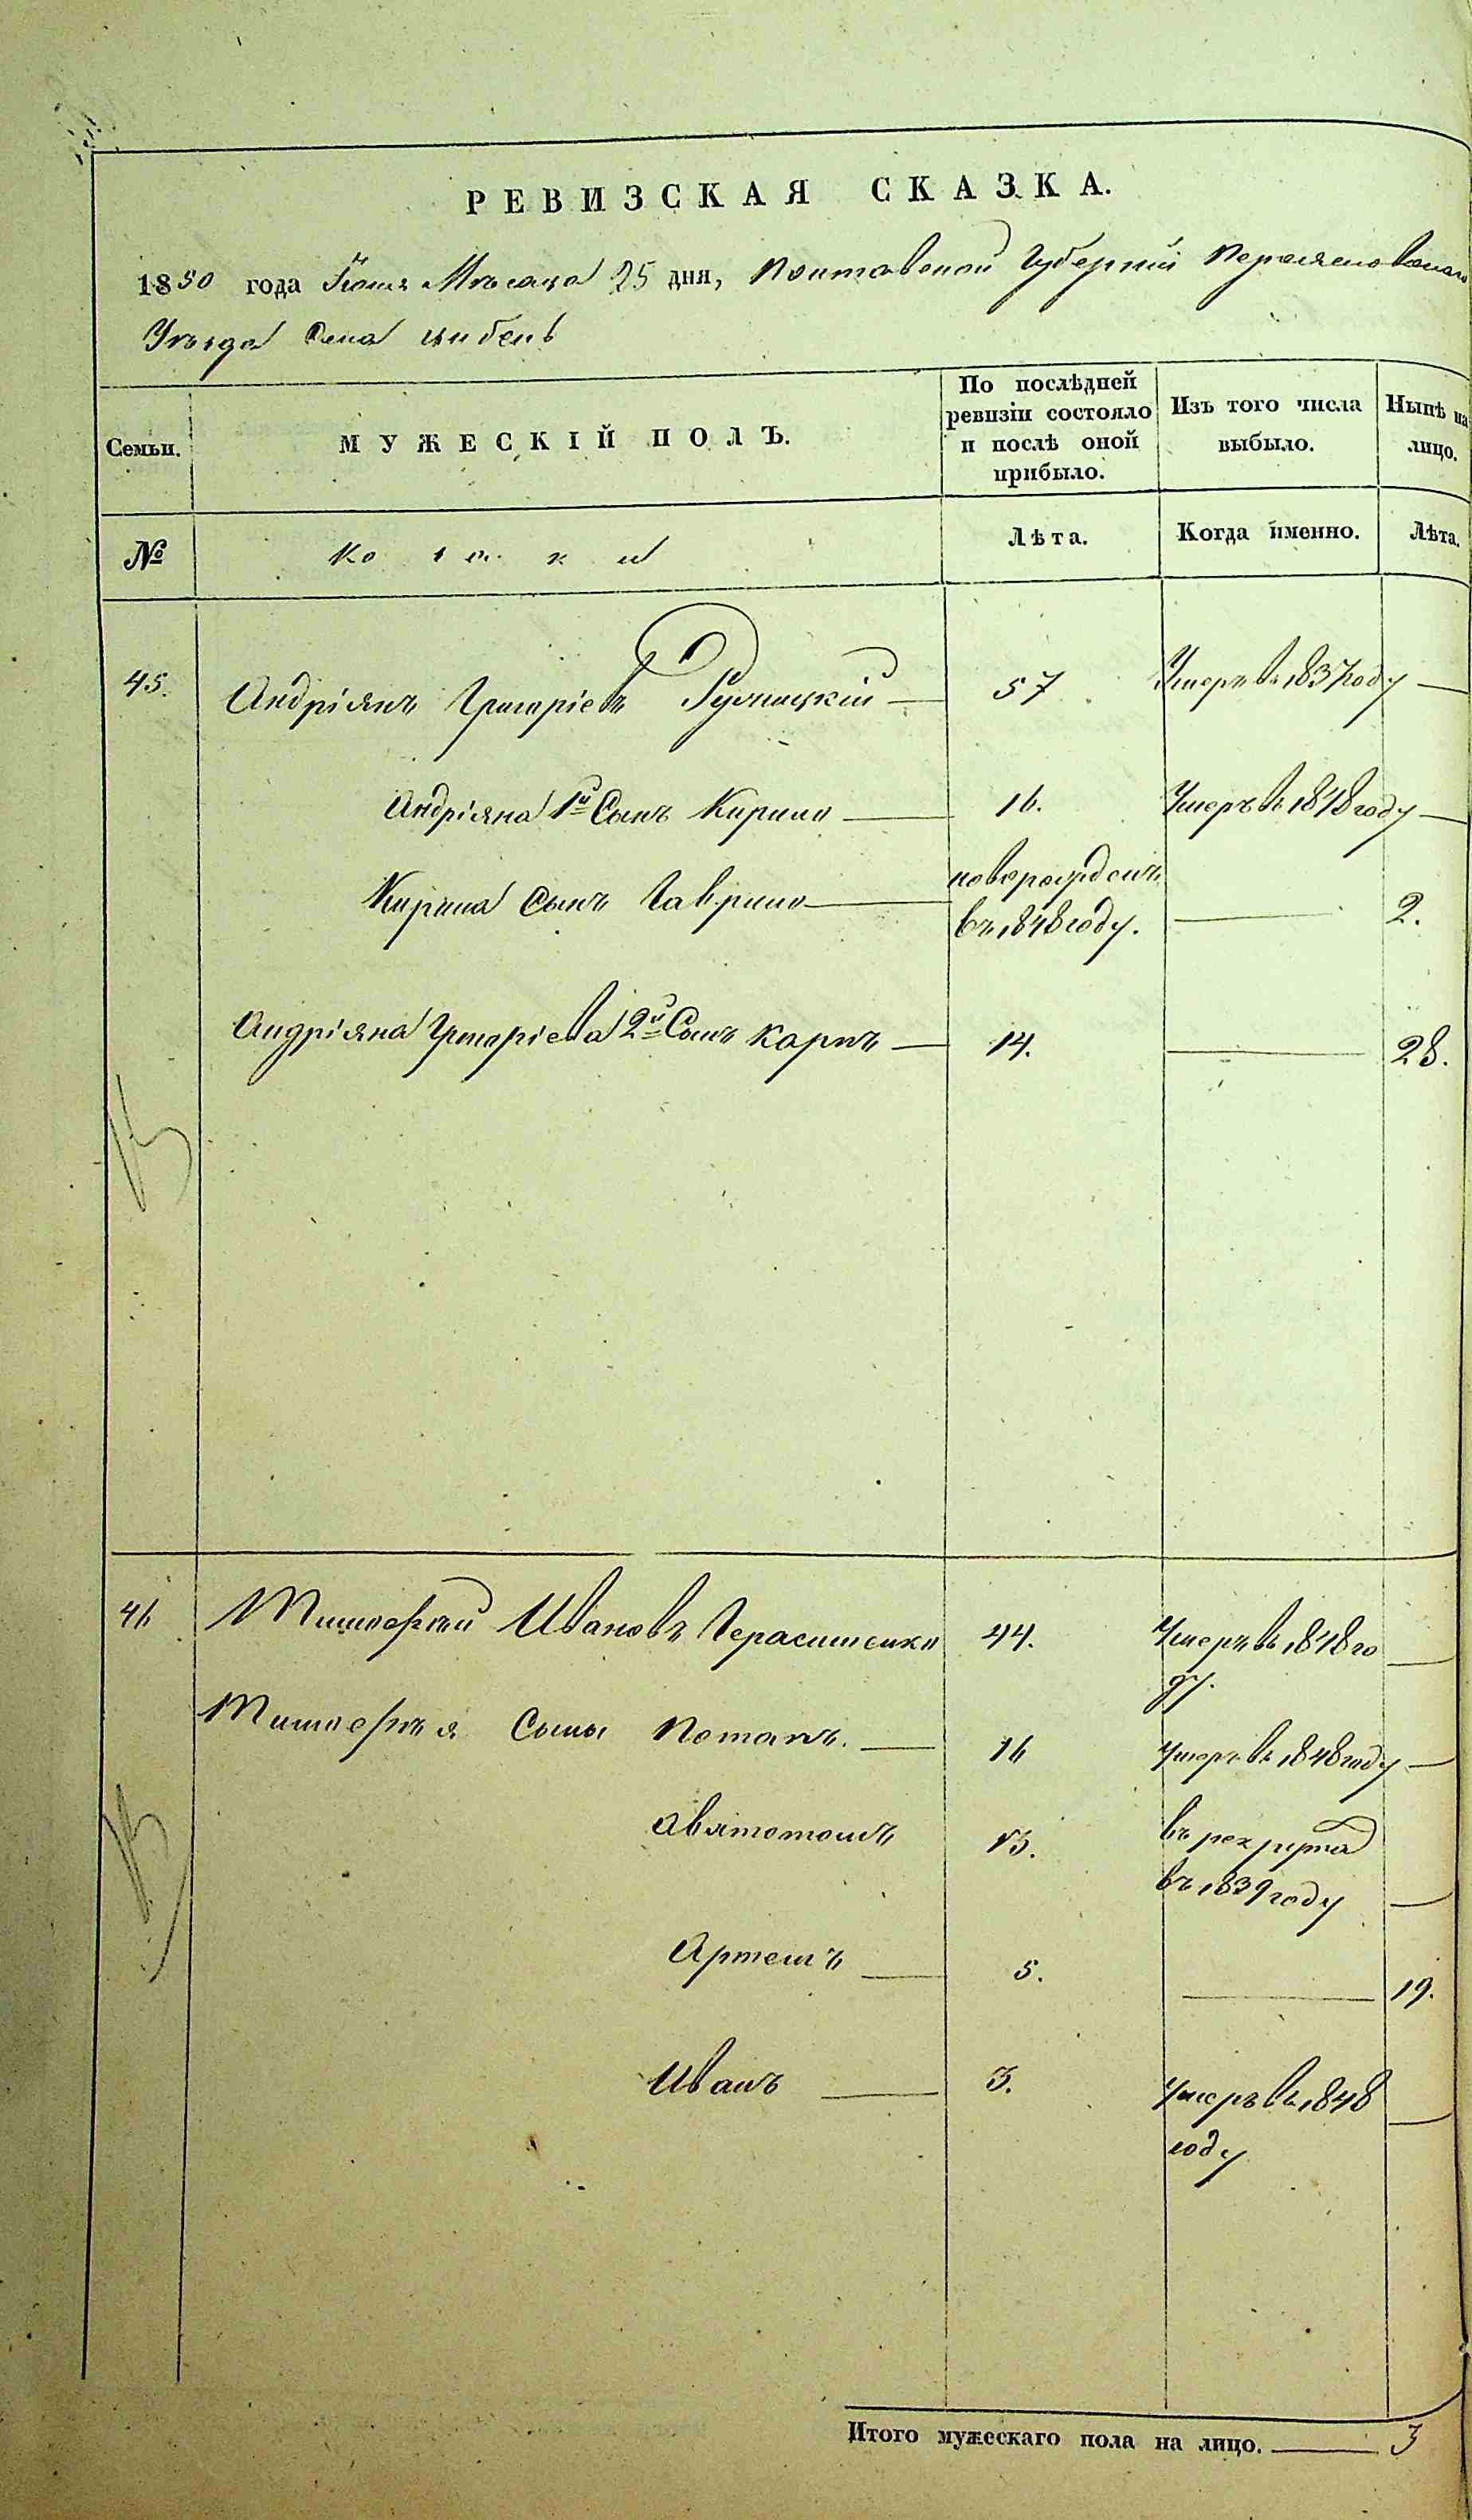 РЕВИЗСКАЯ СКАЗКА.
1850 года Іюня Мѣсяца 25 дня, Полтавской Губерніи Переяславскаго
Уѣзда Села Цибель
Семьи. МУЖЕСКІЙ ПОЛЪ. По послѣдней ревизіи состояло и послѣ оной прибыло. Изъ того числа выбыло. Нынѣ на лицо.
№ Козаки Лѣта. Когда именно. Лѣта.
45. Андріянъ Григоріевъ 57 Умеръ въ 1837 году —
Андріяна 1й Сынъ Кирило — 16. Умеръ въ 1848 году —
Кирила Сынъ Гаврило — новорожденъ
въ 1848 году. — 2.
Андріяна Григоріева 2й Сынъ Карпъ — 14. — 28.
46 Тимофей Ивановъ Герасименко 44. Умеръ въ 1848 го
ду. —
Тимофея Сыны Потапъ. — 16 Умеръ въ 1848 году —
Артомонъ 13. въ рекрута
въ 1839 году —
Артемъ — 5. — 19.
Иванъ — 3. Умеръ въ 1848
году —
Итого мужескаго пола на лицо. — 3